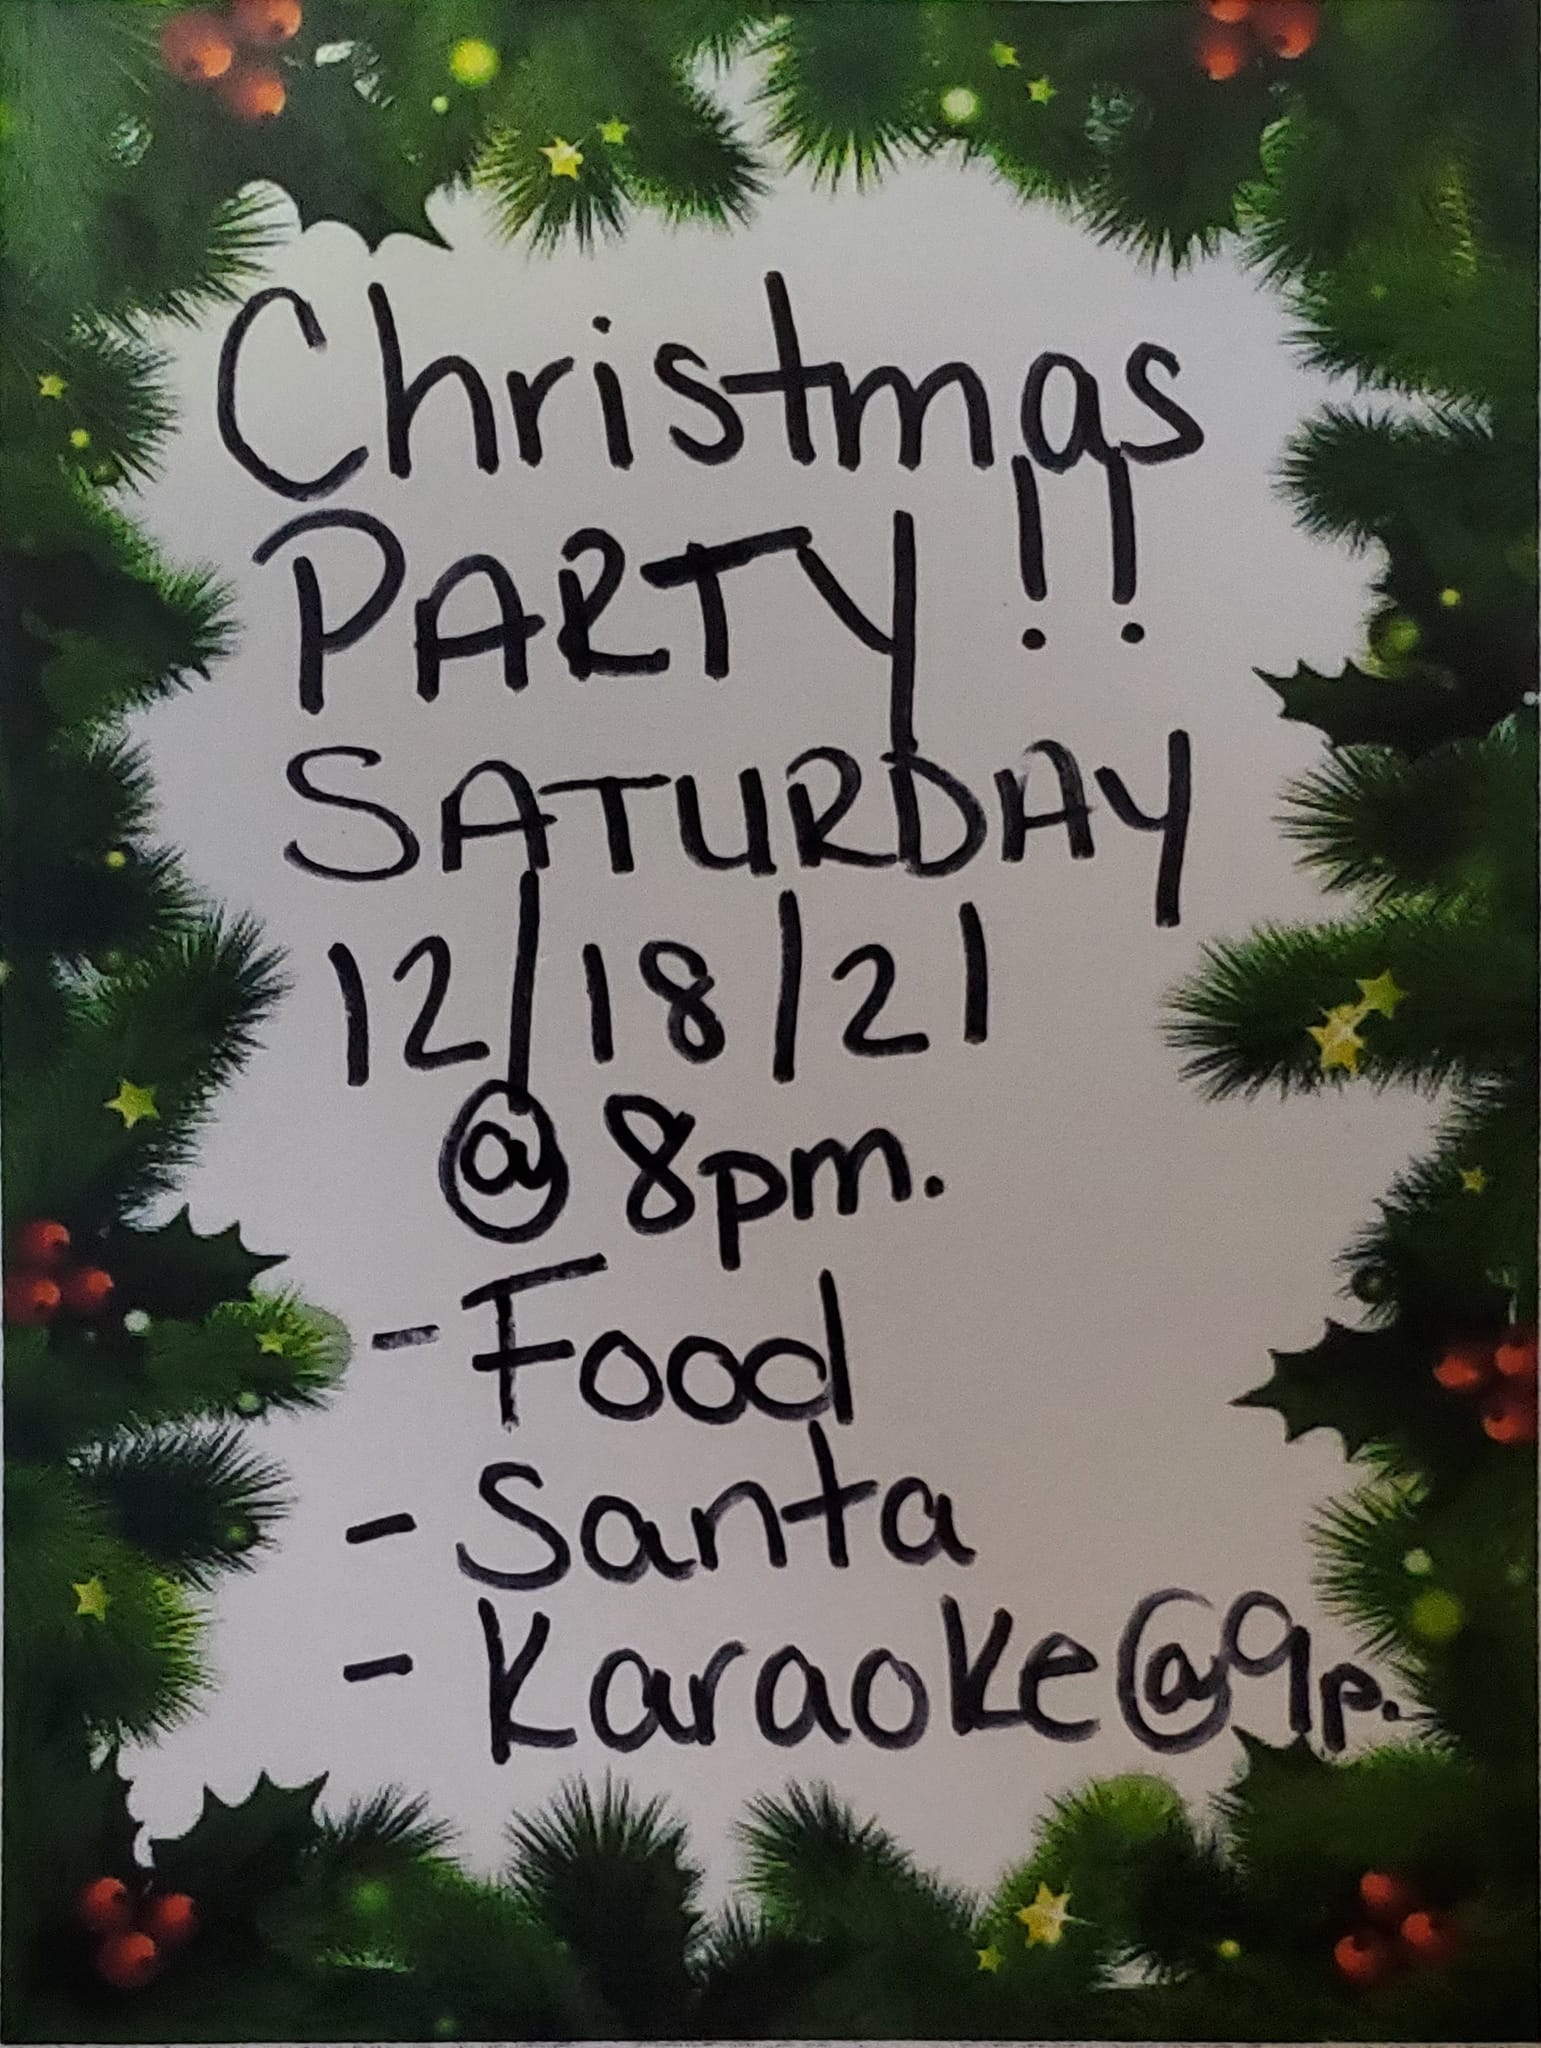 Christmas
PARTY!!
SATURDAY
12/18/21
@ 8pm.
- Food
- Santa
- Karaoke@9p.